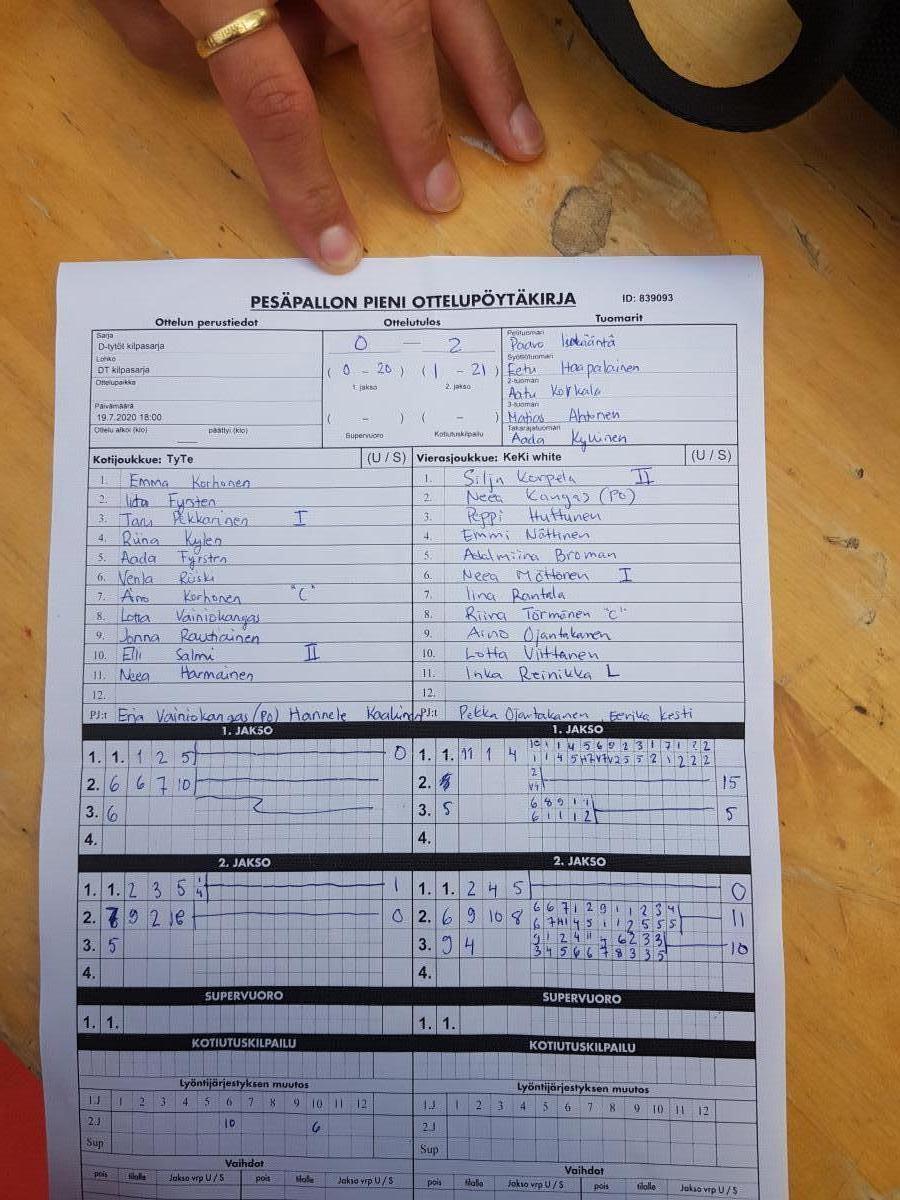 PESÄPALLON PIENI OTTELUPÖYTÄKIRJA ID: 839093
Ottelun perustiedot Ottelutulos Tuomarit
Sarja
D-tytöt kilpasarja
Lohko
DT kilpasarja
Ottelupaikka
Päivämäärä
19.7.2020 18:00
Ottelu alkoi (klo) päättyi (klo)
0 — 2
( 0 - 20 ) ( 1 - 21 )
1. jakso 2. jakso
( - ) ( - )
Supervuoro Kotiutuskilpailu
Pelituomari
Paavo
Syöttötuomari
Eetu Haapalainen
2-tuomari
Aatu Korkala
3-tuomari
Matias Ahtonen
Takarajatuomari
Aada Kyllinen
Kotijoukkue: TyTe (U / S)
1. Emma Korhonen
2. Iita Fyrsten
3. Taru Pekkarinen I
4. Riina Kylen
5. Aada Fyrsten
6. Venla Rüski
7. Aino Korhonen "C"
8. Lotta Vainiokangas
9. Jonna Rautiainen
10. Elli Salmi II
11. Neea Harmainen
12.
PJ:t Erja Vainiokangas (PO) Hannele
Vierasjoukkue: KeKi white (U / S)
1. Silja Korpela II
2. Neea Kangas (PO)
3. Peppi Huttunen
4. Emmi Nättinen
5. Adalmiina Broman
6. Neea Möttönen I
7. Iina Rantala
8. Riina Törmänen "C"
9. Aino Ojantakanen
10. Lotta Viittanen
11. Inka Reinikka L
12.
PJ:t Pekka Ojantakanen, Eerika Kesti
1. JAKSO
1. 1. 1 2 5 0
2. 6 6 7 10
3. 6
4.
1. JAKSO
1. 1. 11 1 4
2. 15
3. 5 5
4.
2. JAKSO
1. 1. 2 3 5 1
2. 9 2 0
3. 5
4.
2. JAKSO
1. 1. 2 4 5 0
2. 6 9 10 8 11
3. 9 4 10
4.
SUPERVUORO
1. 1.
SUPERVUORO
1. 1.
KOTIUTUSKILPAILU
KOTIUTUSKILPAILU
Lyöntijärjestyksen muutos
1.J 1 2 3 4 5 6 7 8 9 10 11 12
2.J 10 6
Sup
Lyöntijärjestyksen muutos
1.J 1 2 3 4 5 6 7 8 9 10 11 12
2.J
Sup
Vaihdot
pois tilalle Jakso vrp U / S pois tilalle Jakso vrp U / S
Vaihdot
pois tilalle Jakso vrp U / S pois tilalle Jakso vrp U / S